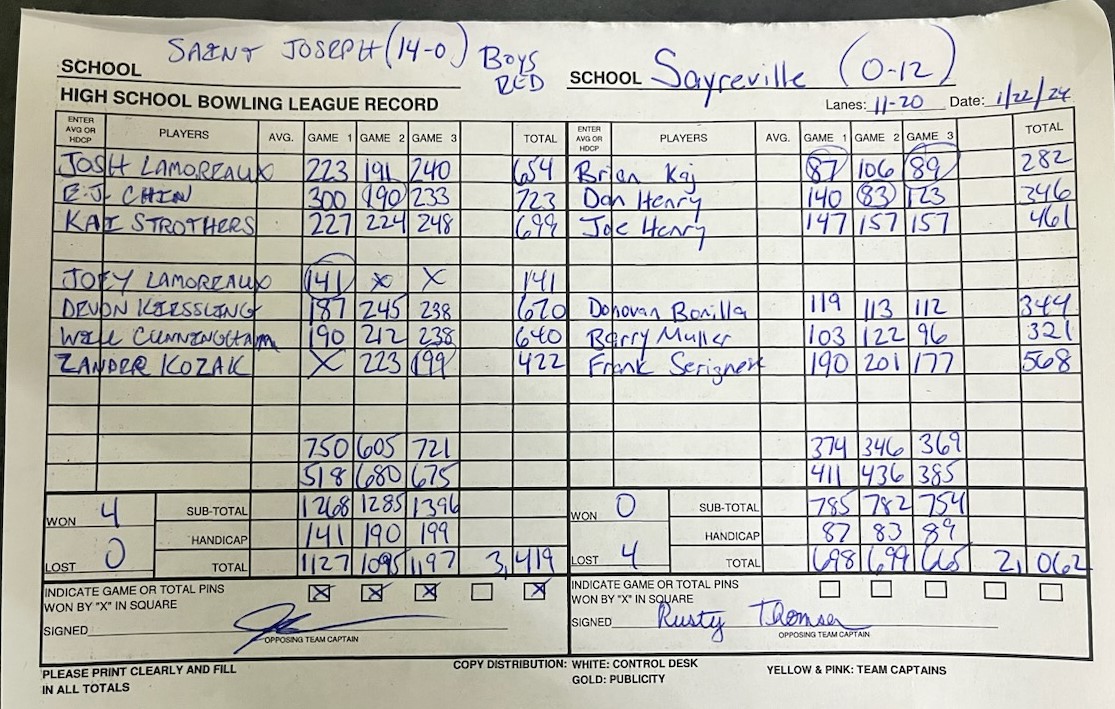 SAINT JOSEPH (14-0) BOYS RED
SCHOOL
SCHOOL Sayreville (0-12)
HIGH SCHOOL BOWLING LEAGUE RECORD
Lanes: 11-20 Date: 1/22/24
ENTER AVG OR HDCP PLAYERS AVG. GAME 1 GAME 2 GAME 3 TOTAL ENTER AVG OR HDCP PLAYERS AVG. GAME 1 GAME 2 GAME 3 TOTAL
JOSH LAMOREAUX 223 191 240 654 Brian Kaj 87 106 89 282
E.J. CHIN 300 190 233 723 Dan Henry 140 83 123 346
KAI STROTHERS 227 224 248 699 Joe Henry 147 157 157 461
JOEY LAMOREAUX 141 X X 141
DEVON KIESSLING 187 245 238 670 Donovan Bonilla 119 113 112 344
WILL CUNNINGHAM 190 212 238 640 Barry Muller 103 122 96 321
ZANDER KOZAK X 223 199 422 Frank 190 201 177 568
750 605 721 374 346 369
518 680 675 411 436 385
WON 4 SUB-TOTAL 1268 1285 1396 WON 0 SUB-TOTAL 785 782 754
HANDICAP 141 190 199 HANDICAP 87 83 89
LOST 0 TOTAL 1127 1095 1197 3,419 LOST 4 TOTAL 698 699 665 2,062
INDICATE GAME OR TOTAL PINS X X X X INDICATE GAME OR TOTAL PINS
WON BY "X" IN SQUARE WON BY "X" IN SQUARE
SIGNED SIGNED Rusty Thomsen
OPPOSING TEAM CAPTAIN OPPOSING TEAM CAPTAIN
PLEASE PRINT CLEARLY AND FILL COPY DISTRIBUTION: WHITE: CONTROL DESK YELLOW & PINK: TEAM CAPTAINS
IN ALL TOTALS GOLD: PUBLICITY